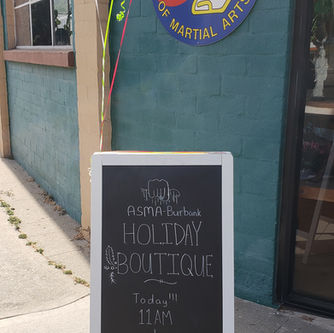 OF MARTIAL ARTS
ASMA-Burbank
HOLIDAY
BOUTIQUE
Today!!!
11AM